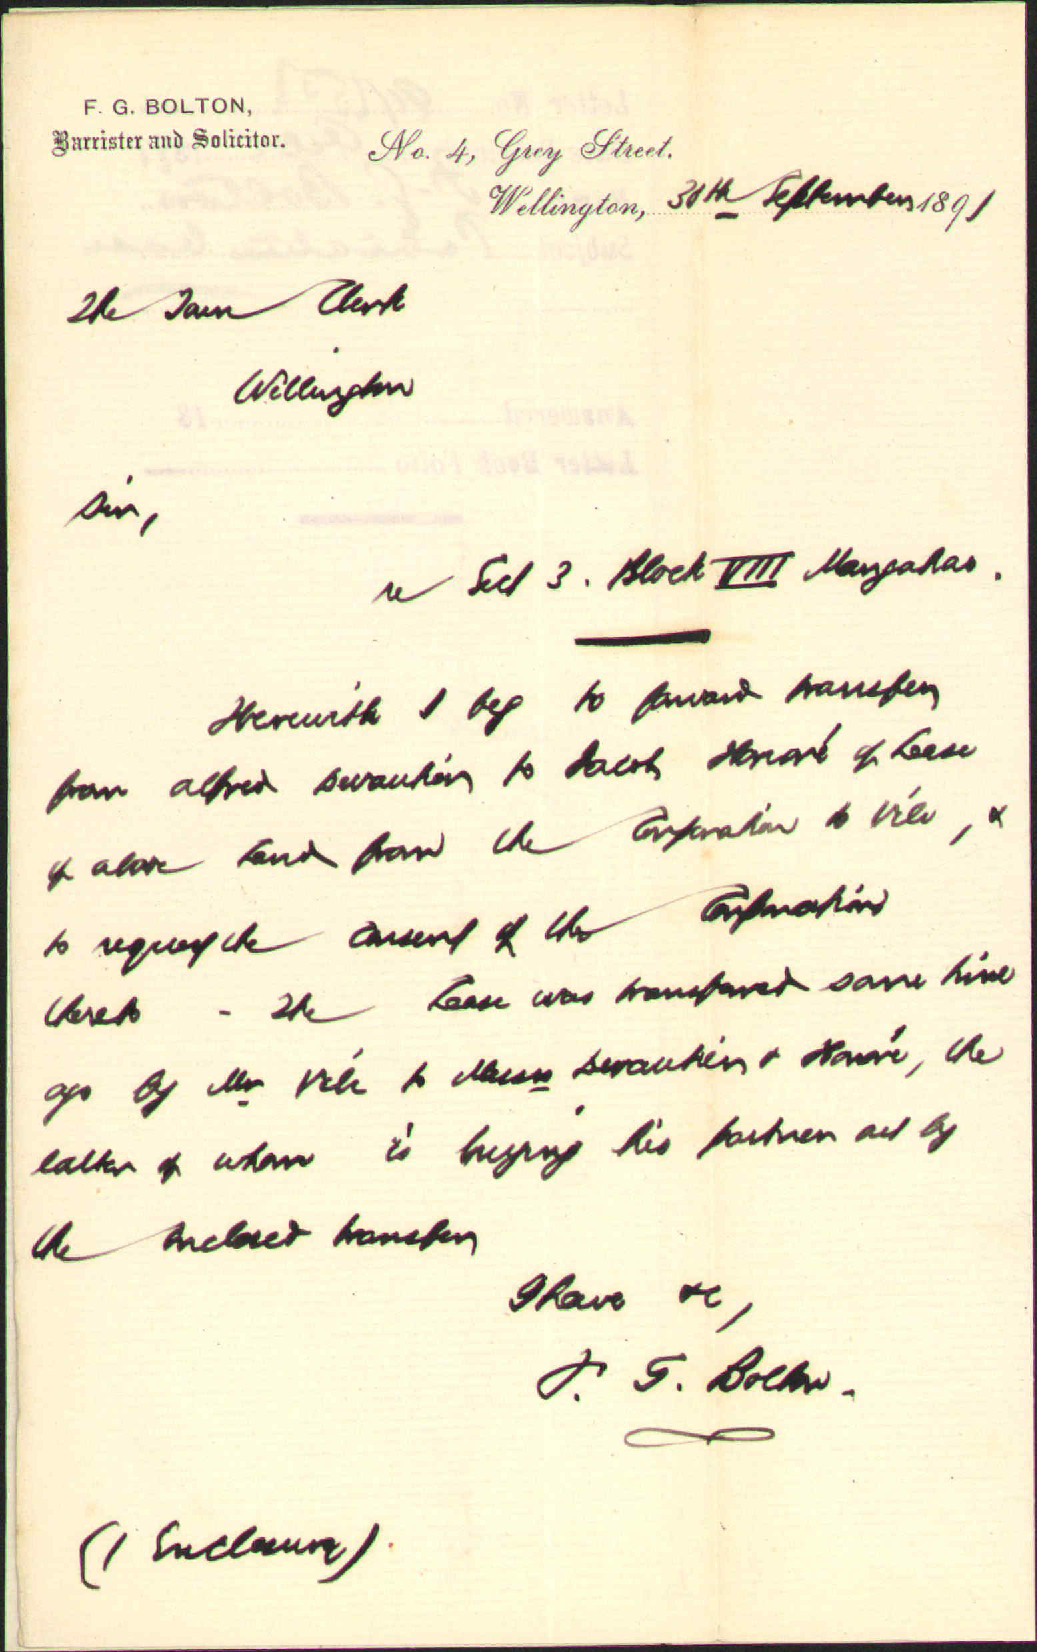 F. G. BOLTON,
Barrister and Solicitor.
No. 4, Grey Street.
Wellington, 30th September 1891
The Town Clerk
Wellington
Sir,
re Sect 3. Block VIII Mangahao.
Herewith I beg to forward transfer
from Alfred to Jacob Honoré of Lease
of above Land from the Corporation to Vile, &
to request the consent of the Corporation
thereto - The Lease was transferred some time
ago by Mr Vile to Messrs & Honoré, the
latter of whom is buying his partner out by
the enclosed transfer
I have &c,
F. G. Bolton.
(1 Enclosure)